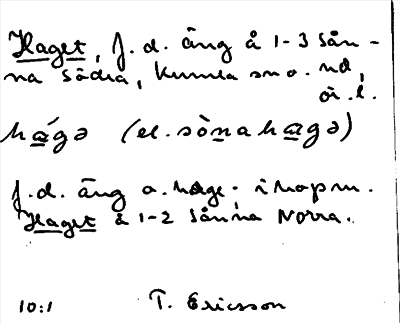 Haget, f.d. äng å 1-3 Sån-
na Södra, Kumla sn o. hd,
ör. l.
hágə (el. sònahagə)
f.d. äng o. hage. i hop m.
Haget å 1-2 Sånna Norra.
10:1 T. Ericsson